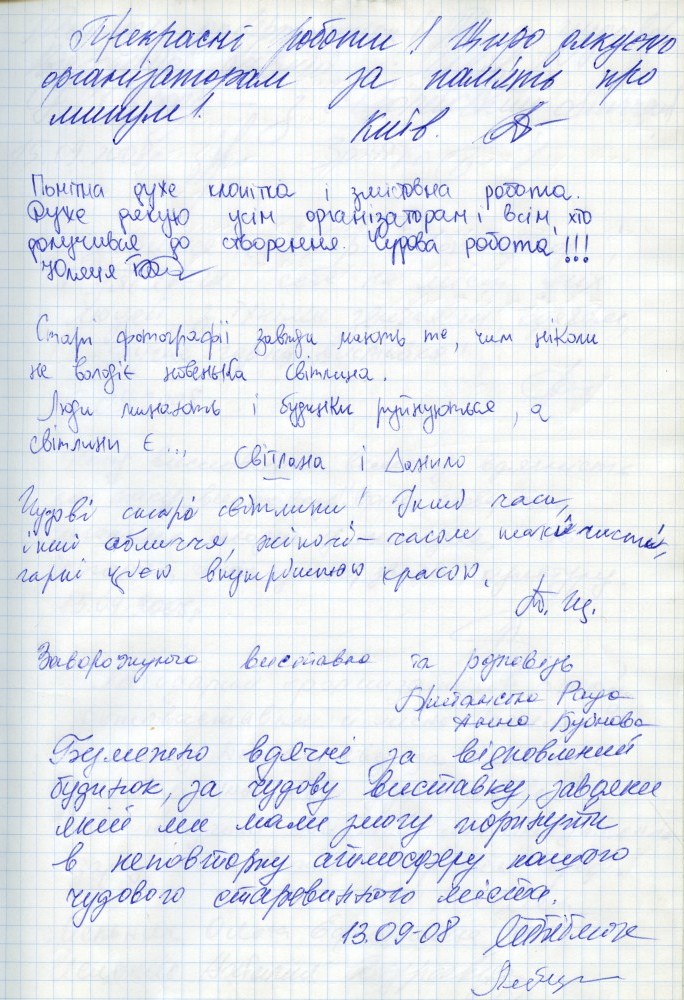 Прекрасні роботи! Щиро дякуємо
організаторам за пам'ять про
минуле!
Київ.
Помітна дуже клопітка і змістовна робота.
Дуже дякую усім організаторам і всім, хто
долучився до створення. Чудова робота!!!
Юлеця
Старі фотографії завжди мають те, чим ніколи
не володіє новенька світлина.
Люди минають і будинки руйнуються, а
світлини є...
Світлана і Данило
Чудові старі світлини! Інші часи,
інші обличчя, жіночі – часом такі чисті,
гарні цією внутрішньою красою.
Т. Щ.
Заворожуюча виставка та розповідь
Британська Рада
Анна Буйнова
Безмежно вдячні за відновлений
будинок, за чудову виставку, завдяки
якій ми мали змогу поринути
в неповторну атмосферу нашого
чудового старовинного міста.
13.09-08